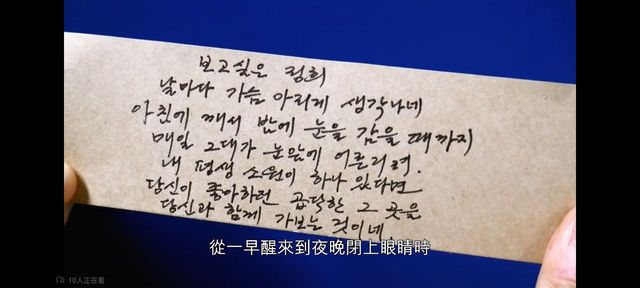 보고싶은 정희
날마다 가슴 아리게 생각나네
아침에 깨서 밤에 눈을 감을 때까지
매일 그대가 눈앞에 어른거려.
내 평생 소원이 하나 있다면
당신이 좋아하던 곱닥한 그 곳을
당신과 함께 가보는 것이네.
從一早醒來到夜晚閉上眼睛時
10人正在看